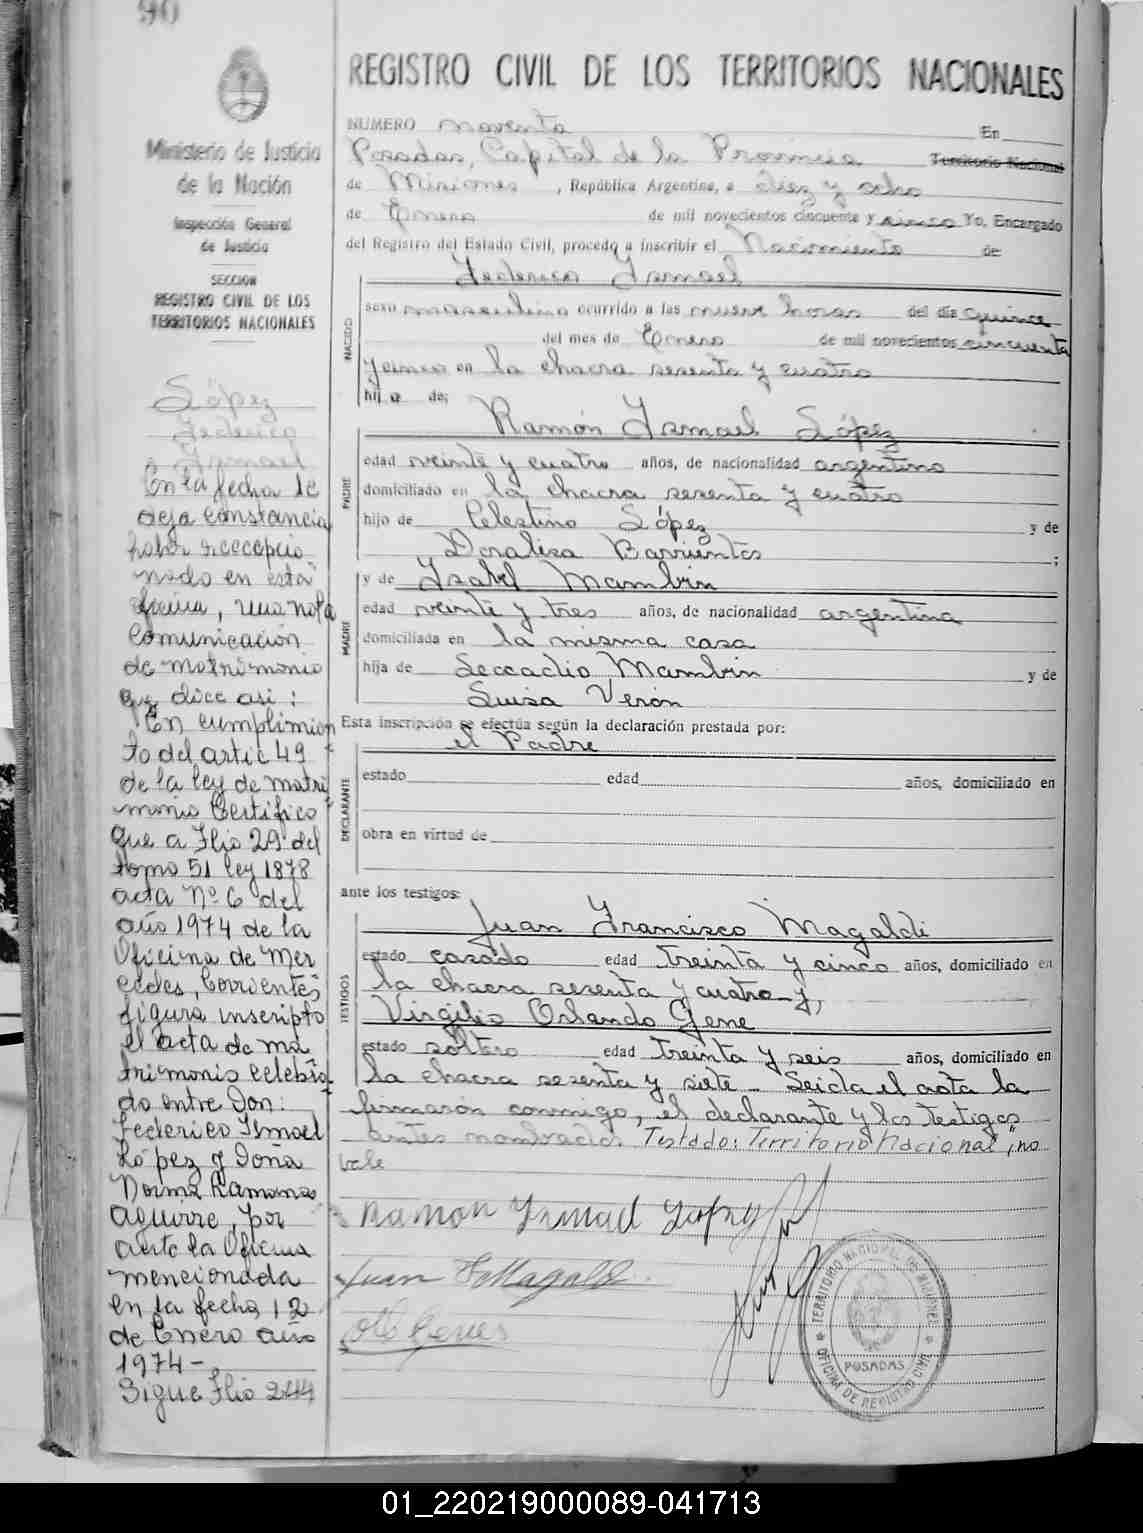 90
REGISTRO CIVIL DE LOS TERRITORIOS NACIONALES
Ministerio de Justicia
de la Nación
Inspección General
de Justicia
SECCION
REGISTRO CIVIL DE LOS
TERRITORIOS NACIONALES
López
Federico
Ismael
En la fecha se
deja constancia
haber recepcio
nado en esta
oficina, una nota
comunicación
de matrimonio
que dice asi:
En cumplimien
to del artic 49
de la ley de matri
monio Certifico
que a Flio 29 del
tomo 51 ley 1878
acta Nº 6 del
año 1974 de la
Oficina de Mer
cedes, Corrientes
figura inscripto
el acta de ma
trimonio celebra
do entre Don:
Federico Ismael
López y Doña
Norma Ramona
Aguirre, por
ante la Oficina
mencionada
en la fecha 12
de Enero año
1974-
Sigue Flio 244
NUMERO noventa En
Posadas, Capital de la Provincia Territorio Nacional
de Misiones, República Argentina, a diez y ocho
de Enero de mil novecientos cincuenta y cinco Yo, Encargado
del Registro del Estado Civil, procedo a inscribir el Nacimiento de
Federico Ismael
NACIDO
sexo masculino ocurrido a las nueve horas del día quince
del mes de Enero de mil novecientos cincuenta
y cinco en la chacra sesenta y cuatro
hijo de:
Ramón Ismael López
PADRE
edad veinte y cuatro años, de nacionalidad argentino
domiciliado en la chacra sesenta y cuatro
hijo de Celestino López y de
Doralisa Barrientos;
y de Isabel Mambrin
MADRE
edad veinte y tres años, de nacionalidad argentina
domiciliada en la misma casa
hija de Leccadio Mambrin y de
Luisa Verón
Esta inscripción se efectúa según la declaración prestada por:
el Padre
DECLARANTE
estado edad años, domiciliado en
obra en virtud de
ante los testigos:
Juan Francisco Magaldi
TESTIGOS
estado casado edad treinta y cinco años, domiciliado en
la chacra sesenta y cuatro y,
Virgilio Orlando Gene
estado soltero edad treinta y seis años, domiciliado en
la chacra sesenta y siete - Leida el acta la
firmaron conmigo, el declarante y los testigos
antes nombrados. Testado: "Territorio Nacional", no
vale
Ramon Ismael Lopez
Juan F Magaldi
TERRITORIO NACIONAL DE MISIONES
POSADAS
OFICINA DE REGISTRO CIVIL
01_220219000089-041713